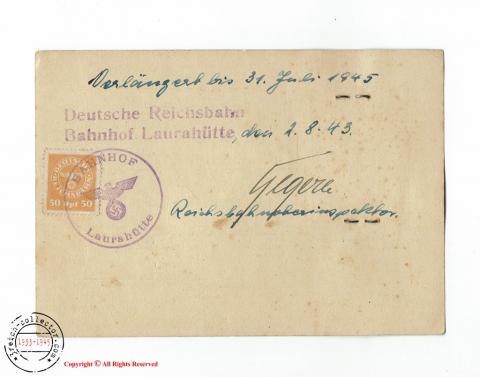 Verlängert bis 31. Juli 1945
Deutsche Reichsbahn
Bahnhof Laurahütte, den 2.8.43.
BAHNHOF
50 Rpf 50
Laurahütte
Reichsbahnoberinspektor.
3reich-collector.com
1933-1945
Copyright © All Rights Reserved